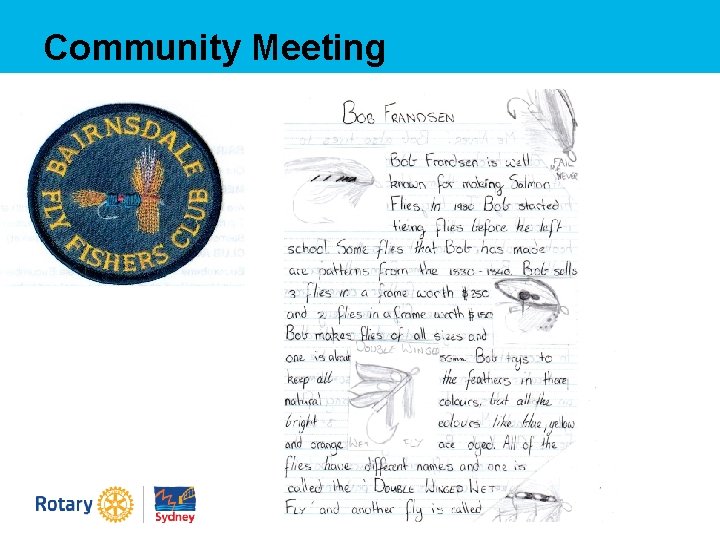 Community Meeting
BAIRNSDALE
FLY FISHERS CLUB
BOB FRANDSEN
Bob Frandsen is well
known for making Salmon
Flies. In 1930 Bob started
tieing flies before he left
school. Some flies that Bob has made
are patterns from the 1830-1840. Bob sells
3 flies in a frame worth $250
and 2 flies in a frame worth $150
Bob makes flies of all sizes and
one is about 55mm. Bob trys to
keep all the feathers in there
natural colours, but all the
bright colours like blue, yellow
and orange are dyed. All of the
flies have different names and one is
called the 'DOUBLE WINGED WET
FLY' and another fly is called
FAIL
NEVER
DOUBLE WINGED
WET FLY
Rotary
Sydney